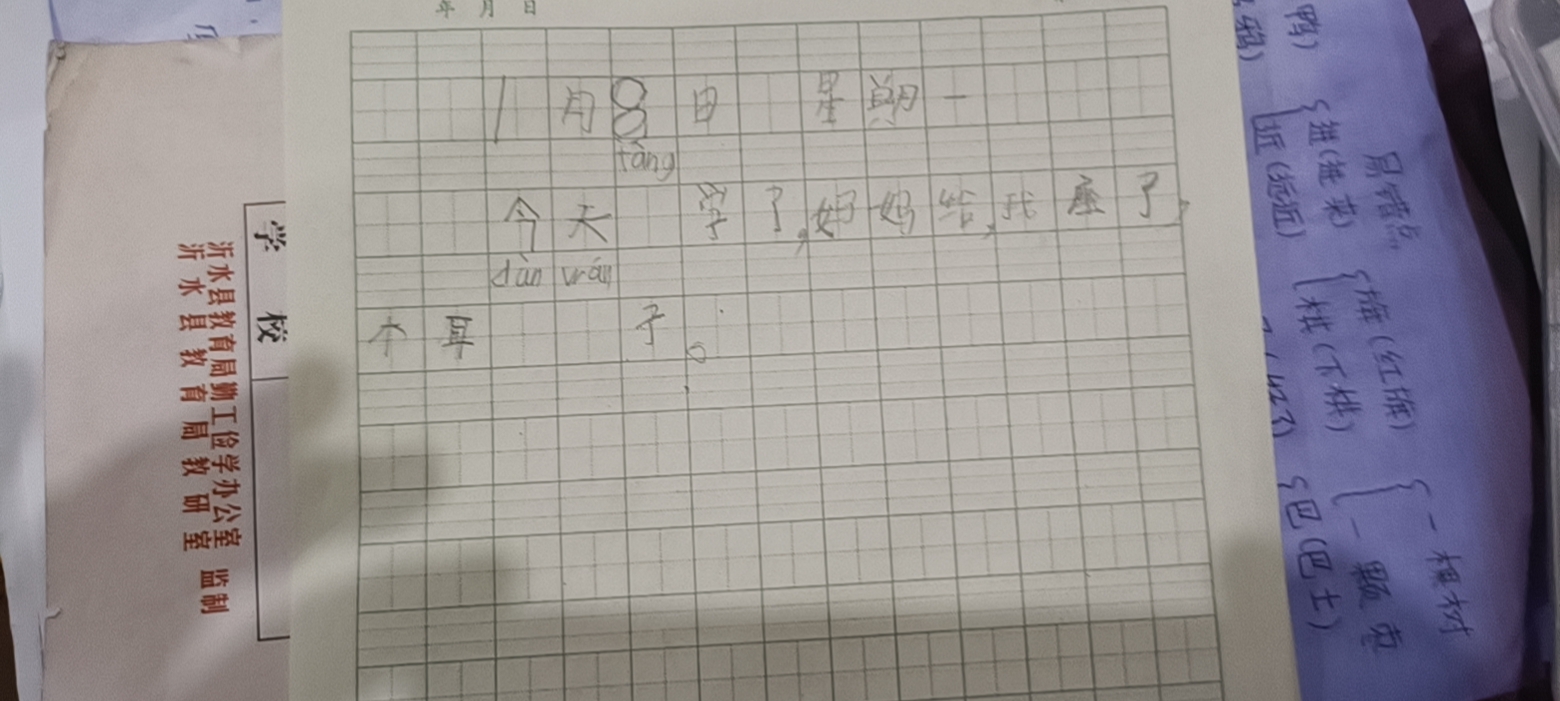 年 月 日
1月8日 星期一
fàng
今天 学了,妈妈给,我座了,
木耳 子。
学校
沂水县教育局勤工俭学办公室 监制
沂水县教育局教研室
易错点
旗(红旗)
棋(下棋)
一棵树
一颗枣
巴(巴士)